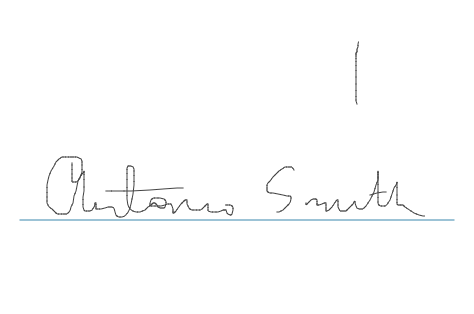 Antonio Smith